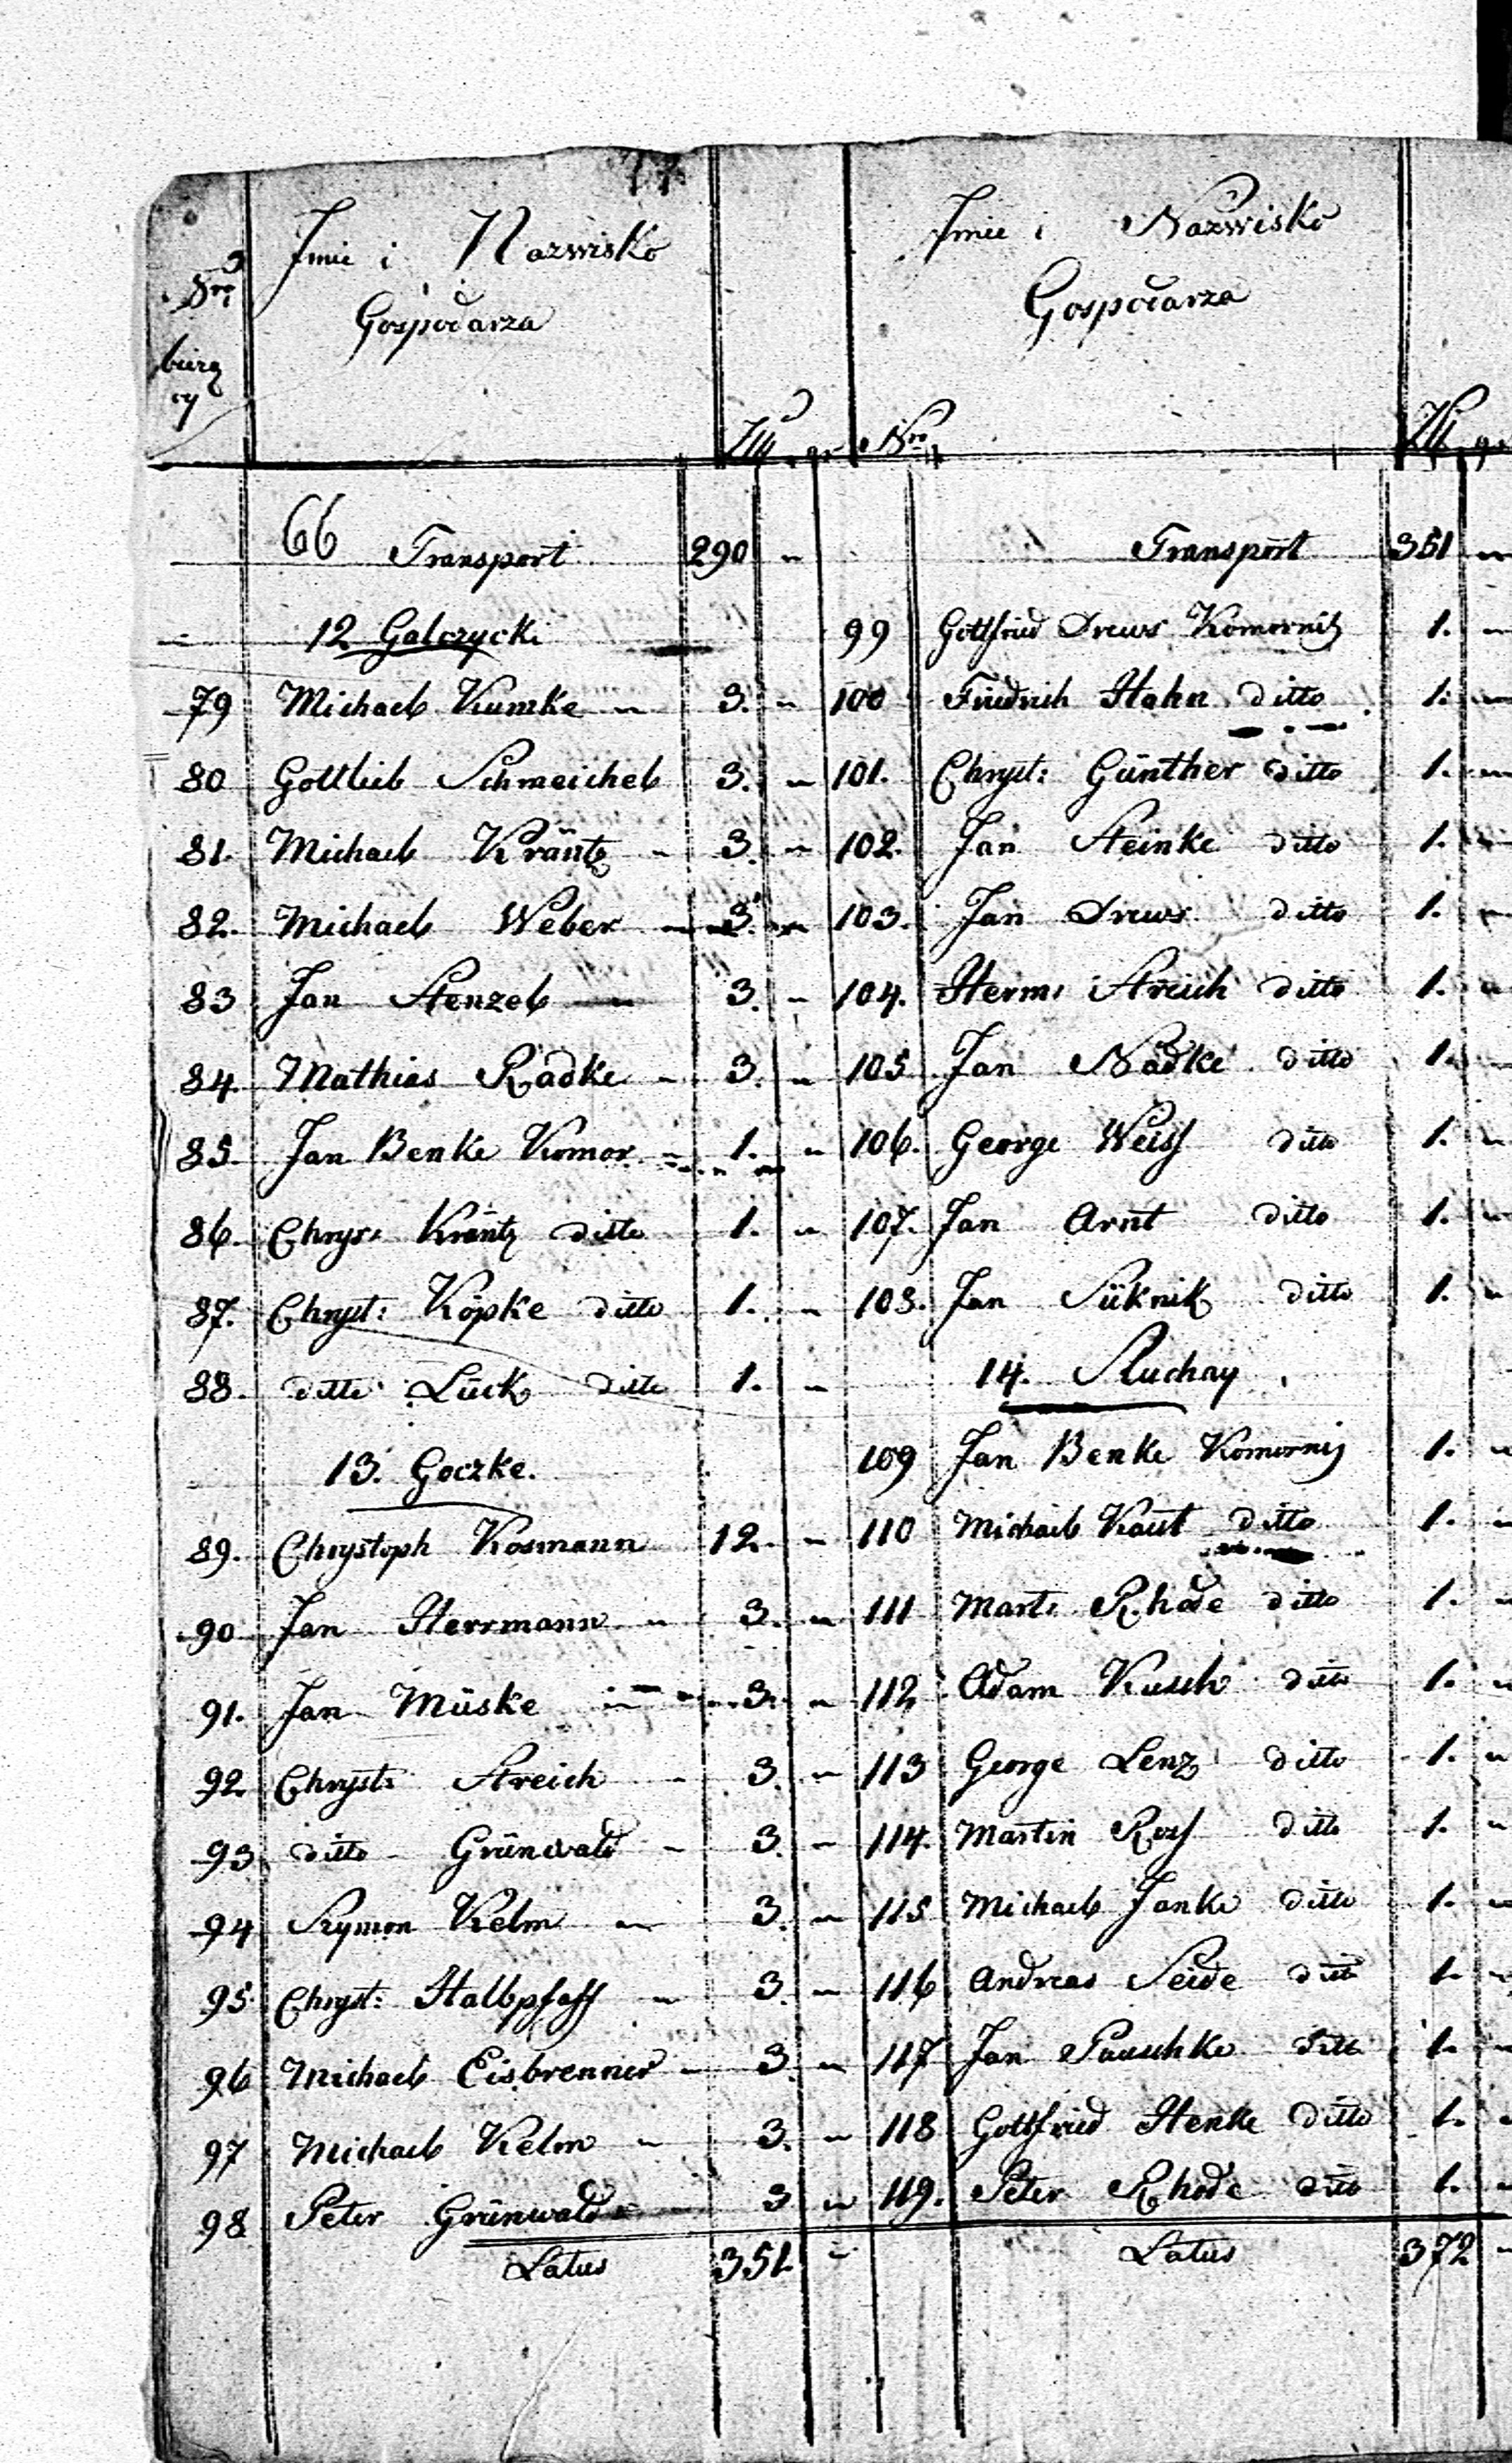 Nro
burg
cy
Jmie i Nazwisko
Gospodarza
Złł gr
66 Transport 290 "
12 Galczycki
79 Michael Kumke " 3. "
80 Gottlieb Schmeichel 3. "
81. Michael Kräntz " 3. "
82. Michael Weber " 3. "
83 Jan Stenzel " 3. "
84. Mathias Radke " 3. "
85. Jan Benke Komor " 1. "
86. Chrys: Kräntz ditto 1. "
87. Chryst: Köpke ditto 1. "
88. ditto Lück ditto 1. "
13. Goczke.
89. Chrystoph Kosmann 12. "
90 Jan Herrmann " 3. "
91. Jan Müske " 3. "
92 Chryst: Streich " 3. "
93 ditto Grünwald " 3. "
94 Szymon Kelm " 3. "
95 Chryst: Halbpfaff " 3. "
96 Michael Eisbrenner " 3. "
97 Michael Kelm " 3. "
98 Peter Grünwald 3 "
Latus 351 "
Nro
Jmie i Nazwisko
Gospodarza
Złł gr
Transport 351 "
99 Gottfried Drews Komornik 1. "
100 Friedrich Hahn ditto 1. "
101. Chryst: Günther ditto 1. "
102. Jan Steinke ditto 1. "
103. Jan Drews ditto 1. "
104. Herm: Streich ditto 1. "
105 Jan Nadke ditto 1. "
106. George Weiss ditto 1. "
107. Jan Arnt ditto 1. "
108. Jan Süknik ditto 1. "
14. Sluchay
109 Jan Benke Komorni 1. "
110 Michael Kaut ditto 1. "
111 Mart: Rhode ditto 1. "
112 Adam Kusch ditto 1. "
113 George Lenz ditto 1. "
114. Martin Ross ditto 1. "
115 Michael Janke ditto 1. "
116 Andreas Seide ditto 1. "
117 Jan Pauschke ditto 1. "
118 Gottfried Henke ditto 1. "
119. Peter Rhode ditto 1. "
Latus 372 "